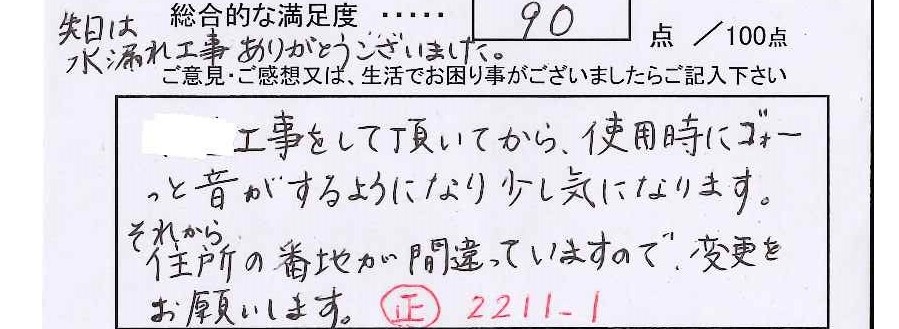 総合的な満足度 ····· 90 点 ／100点
先日は
水漏れ工事ありがとうございました。
ご意見・ご感想又は、生活でお困り事がございましたらご記入下さい
工事をして頂いてから、使用時にゴォー
っと音がするようになり少し気になります。
それから
住所の番地が間違っていますので、変更を
お願いします。 正 2211-1